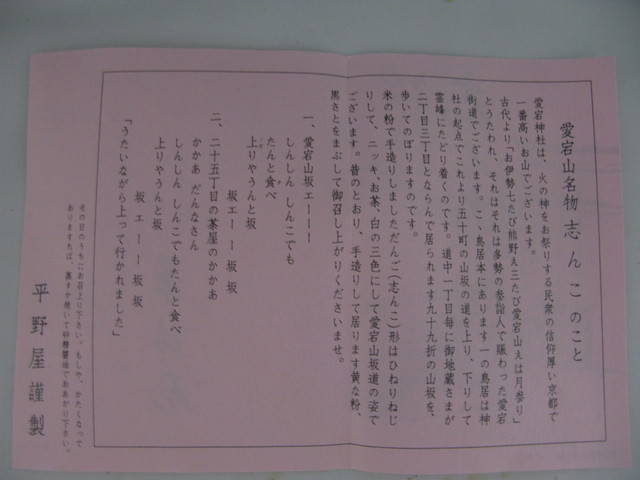 愛宕山名物 志んこのこと
愛宕神社は、火の神をお祭りする民衆の信仰厚い京都で
一番高いお山でございます。
古代より「お伊勢七たび熊野え三たび愛宕山えは月参り」
とうたわれ、それはそれは多勢の参詣人で賑わった愛宕
街道でございます。こゝ鳥居本にあります一の鳥居は神
社の起点でこれより五十町の山坂の道を上り、下りして
霊峰にたどり着くのです。道中一丁目毎に御地蔵さまが
二丁目三丁目とならんで居られます九十九折の山坂を、
歩いてのぼりますのです。
米の粉で手造りしましただんご(志んこ)形はひねりねじ
りして、ニッキ、お茶、白の三色にして愛宕山坂道の姿で
ございます。昔のとおり、手造りして居ります黄な粉、
黒さとをまぶして御召し上がりくださいませ。
一、愛宕山坂エーーー
しんしん しんこでも
たんと食べ
上りゃうんと坂
坂エーー坂 坂
二、二十五丁目の茶屋のかかあ
かかあ だんなさん
しんしん しんこでもたんと食べ
上りゃうんと坂
坂 エーー 坂 坂
「うたいながら上って行かれました」
その日のうちにお召上り下さい。もしや、かたくなって
おりますれば、蒸すか焼いて砂糖醤油でおあがり下さい。
平野屋謹製